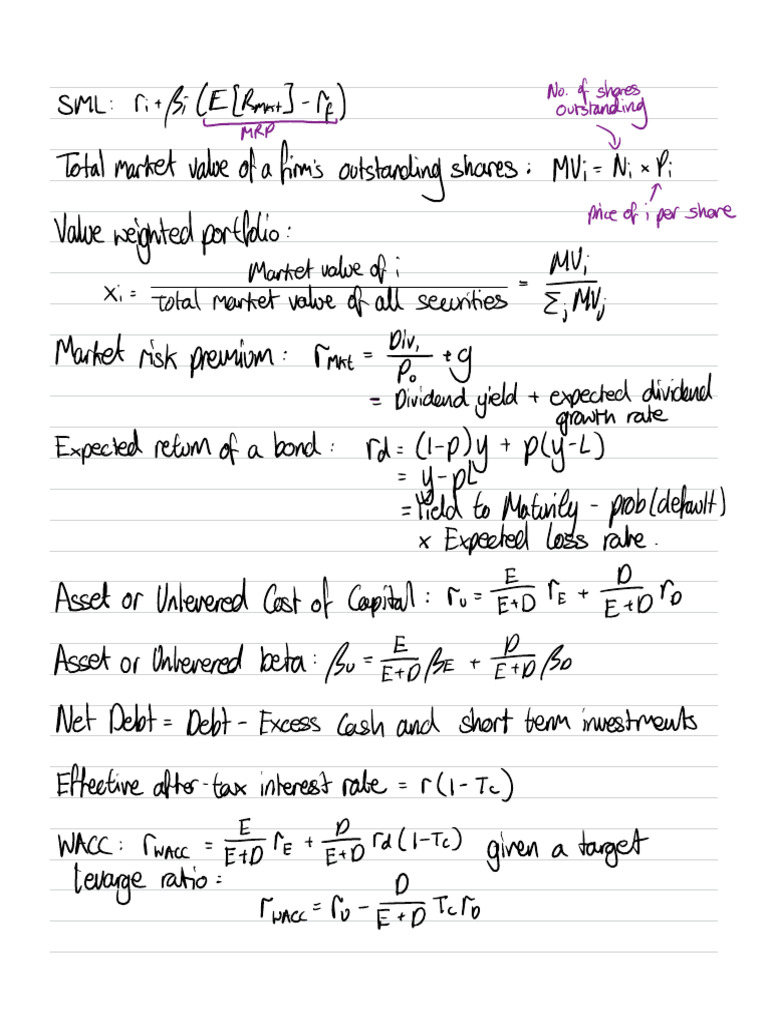 SML: rᵢ + βᵢ (E[R_Mkt] - r_f)
MRP
No. of shares
outstanding
Total market value of a firm's outstanding shares: MVᵢ = Nᵢ × Pᵢ
price of i per share
Value weighted portfolio:
xᵢ = Market value of i / Total market value of all securities = MVᵢ / Σⱼ MVⱼ
Market risk premium: r_Mkt = Div₁ / P₀ + g
= Dividend yield + expected dividend
growth rate
Expected return of a bond: rd = (1-p)y + p(y-L)
= y - pL
= Yield to Maturity - prob(default)
× Expected Loss rate.
Asset or Unlevered Cost of Capital: r_U = E / E+D r_E + D / E+D r_D
Asset or Unlevered beta: β_U = E / E+D β_E + D / E+D β_D
Net Debt = Debt - Excess Cash and short term investments
Effective after-tax interest rate = r(1-Tc)
WACC: r_WACC = E / E+D r_E + D / E+D rd(1-Tc) given a target
levarge ratio:
r_WACC = r_U - D / E+D Tc r_D